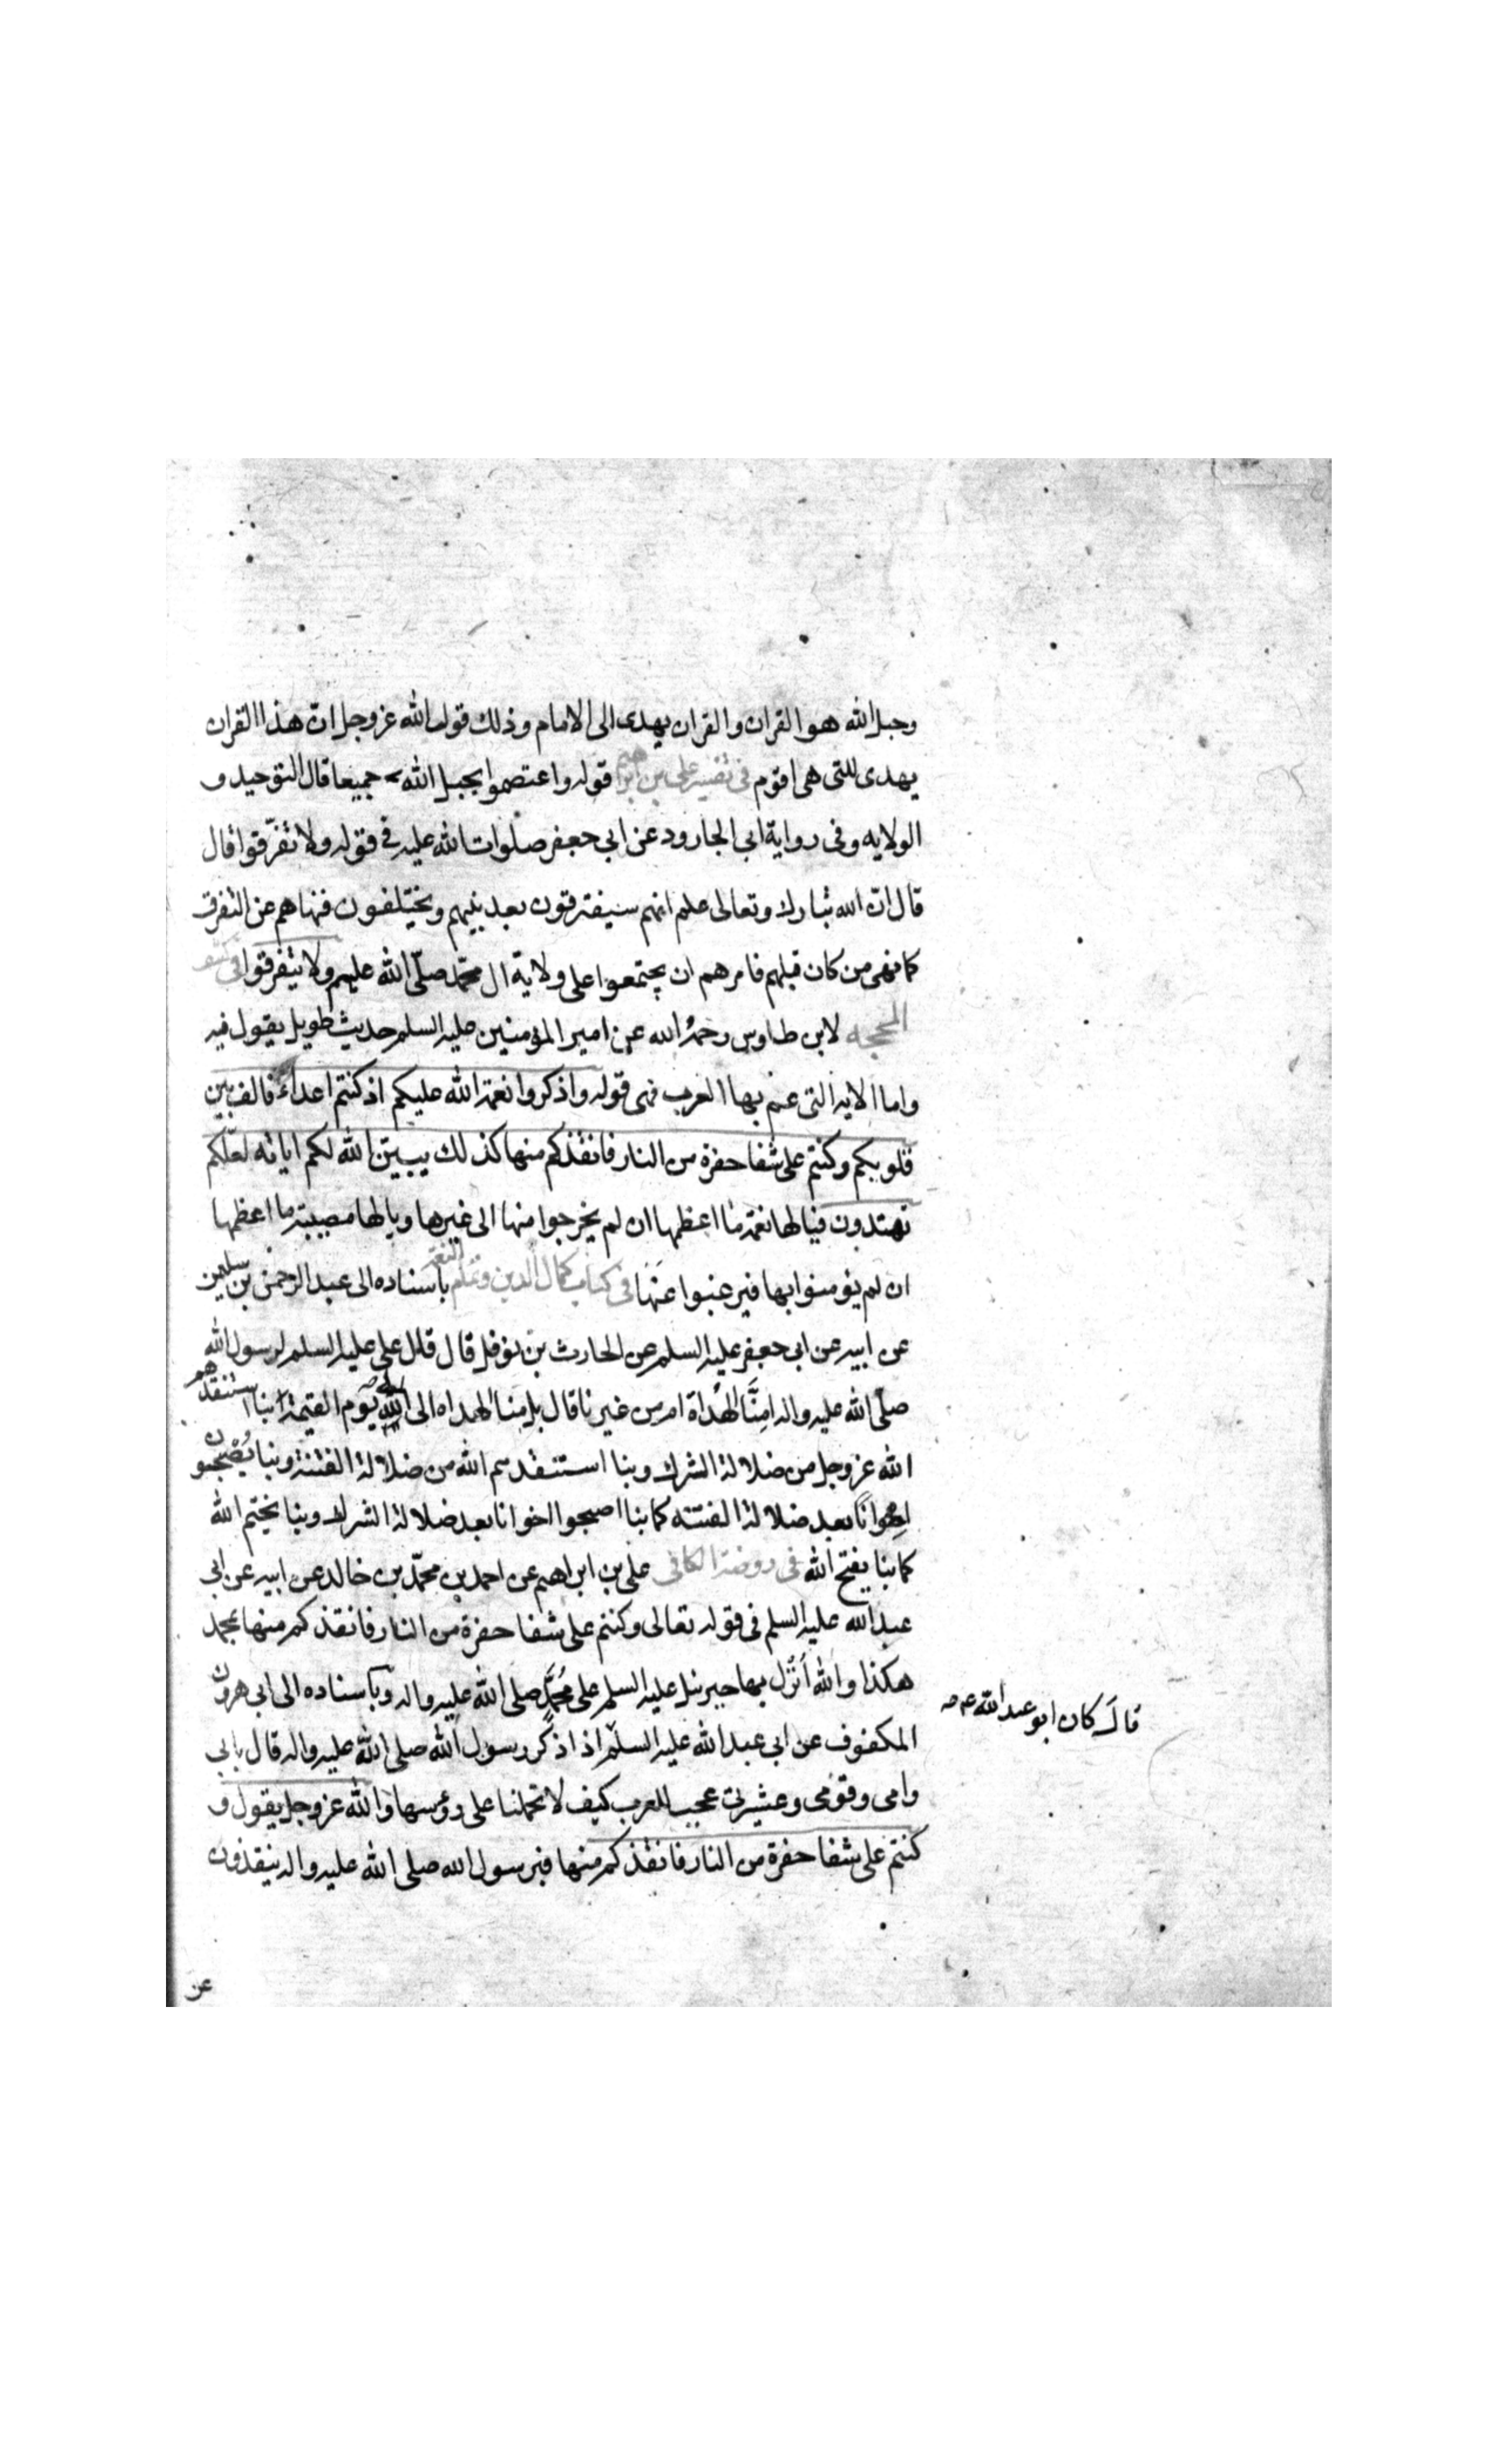 وحبل الله هو القران والقران يهدى الى الامام وذلك قول الله عز وجل ان هذا القران
يهدى للتى هى اقوم فى تفسير على بن ابراهيم قوله واعتصموا بحبل الله جميعا قال التوحيد و
الولايه وفى رواية ابى الجارود عن ابي جعفر صلوات الله عليه في قوله ولا تفرّقوا قال
قال انّ الله تبارك وتعالى علم انهم سيفترقون بعد نبيهم ويختلفون فنهاهم عن التفرق
كما نهى من كان قبلهم فامرهم ان يجتمعوا على ولاية ال محمّد صلّى الله عليهم ولا يتفرقوا فى كشف
المحجه لابن طاوس رحمهُ الله عن امير المؤمنين عليه السلم حديث طويل يقول فيه
واما الايه التى عنى بها العرب فهى قوله واذكروا نعمة الله عليكم اذ كنتم اعداءً فالف بين
قلوبكم وكنتم على شفا حفرة من النار فانقذكم منها كذلك يبيّن الله لكم اياته لعلّكم
تهتدون فيا لها نعمة ما اعظمها ان لم يخرجوا منها الى غيرها ويا لها مصيبة ما اعظمها
ان لم يؤمنوا بها فيرغبوا عَنْهَا فى كتاب كمال الدين وتمام النعمة باسناده الى عبد الرحمن بن سليمن
عن ابيه عن ابى جعفر عليه السلم عن الحارث بن نوفل قال قال على عليه السلم لرسول الله
صلّى الله عليه واله امِنَّا الهُداة ام من غيرنا قال بل منا الهداه الى الله يوم القيمة بنا استنقذهم
الله عز وجل من ضلالة الشرك وبنا استنقذهم الله من ضلالة الفتنة وبنا يُصْبحون
اخوانًا بعد ضلالة الفتنه كما بنا اصبحوا اخوانا بعد ضلالة الشرك وبنا يختم الله
كما بنا يفتح الله فى روضة الكافى على بن ابراهيم عن احمد بن محمّد بن خالد عن ابيه عن ابى
عبد الله عليه السلم فى قوله تعالى وكنتم على شفا حفرة من النار فانقذكم منها بمحمد
هكذا والله اَنْزل بها جبرئيل عليه السلم على مُحمَّدٍ صلى الله عليه واله وباسناده الى ابى هرون
قال كان ابو عبد الله ع
المكفوف عن ابى عبد الله عليه السلم اذا ذكر رسول الله صلى الله عليه واله قال بابي
وامى وقومى وعشيرتى عجب للعرب كيف لا تحملنا على رؤسها والله عز وجل يقول و
كنتم على شفا حفرة من النار فانقذكم منها فبرسول الله صلى الله عليه واله ينقذون
عن